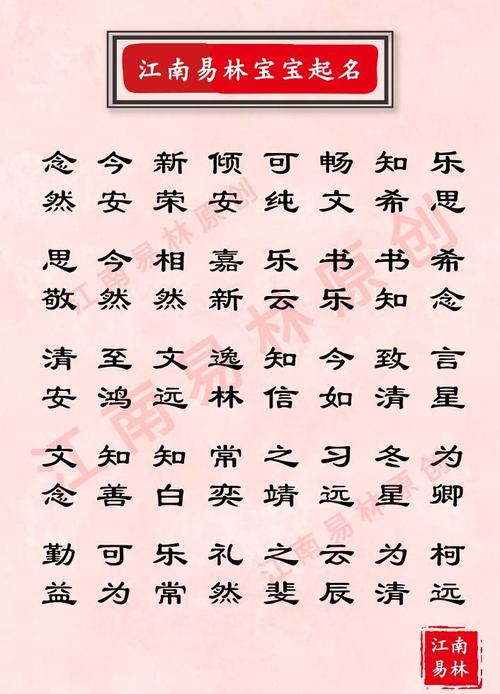 江南易林宝宝起名
念今新倾可畅知乐
然安荣安纯文希思
思今相嘉乐书书希
敬然然新云乐知念
清至文逸知今致言
安鸿远林信如清星
文知知常之习冬为
念善白奕靖远星卿
勤可乐礼之云为柯
益为常然斐辰清远
江南易林原创
江南易林原创
江南易林原创
江南
易林